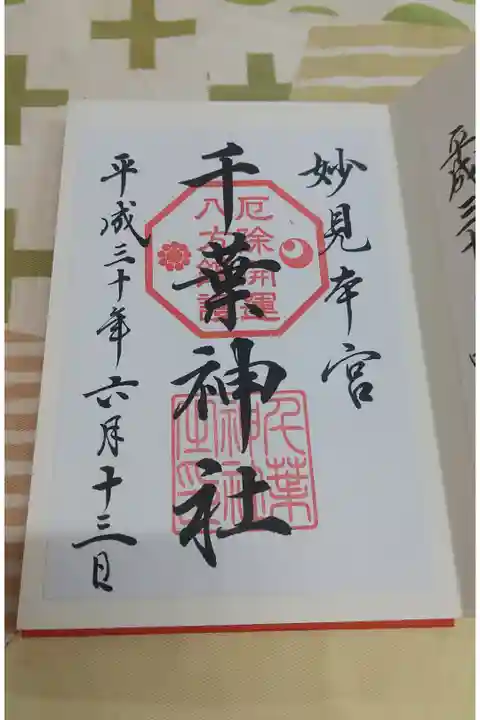 平成三十
妙見本宮
千葉神社
平成三十年六月十三日
厄除開運
八方
千葉
神社